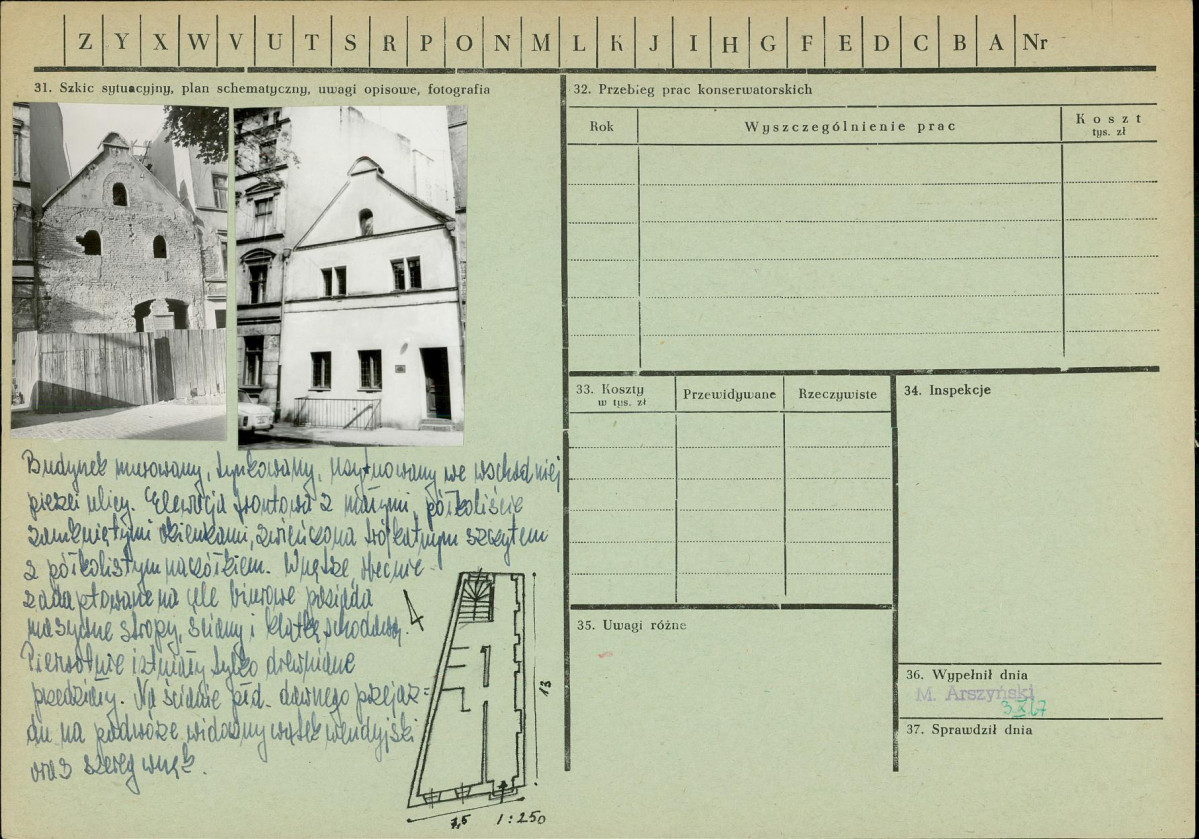 Z Y X W V U T S R P O N M L K J I H G F E D C B A Nr
31. Szkic sytuacyjny, plan schematyczny, uwagi opisowe, fotografia
Budynek murowany, tynkowany, usytuowany we wschodniej
pierzei ulicy. Elewacja frontowa z małymi, półkoliście
zamkniętymi okienkami, zwieńczona trójkątnym szczytem
z półkolistym naczółkiem. Wnętrze obecnie
zaadaptowane na cele biurowe posiada
masywne stropy, ściany i klatkę schodową.
Pierwotnie istniały tylko drewniane
przedziały. Na ścianie płd. dawnego przejaz=
du na podwórze widoczny wątek wendyjski
oraz szereg wnęk.
13
7,5 1:250
32. Przebieg prac konserwatorskich
Rok Wyszczególnienie prac Koszt
tys. zł
33. Koszty Przewidywane Rzeczywiste
w tys. zł
34. Inspekcje
35. Uwagi różne
36. Wypełnił dnia
M. Arszyński
3 X 67
37. Sprawdził dnia